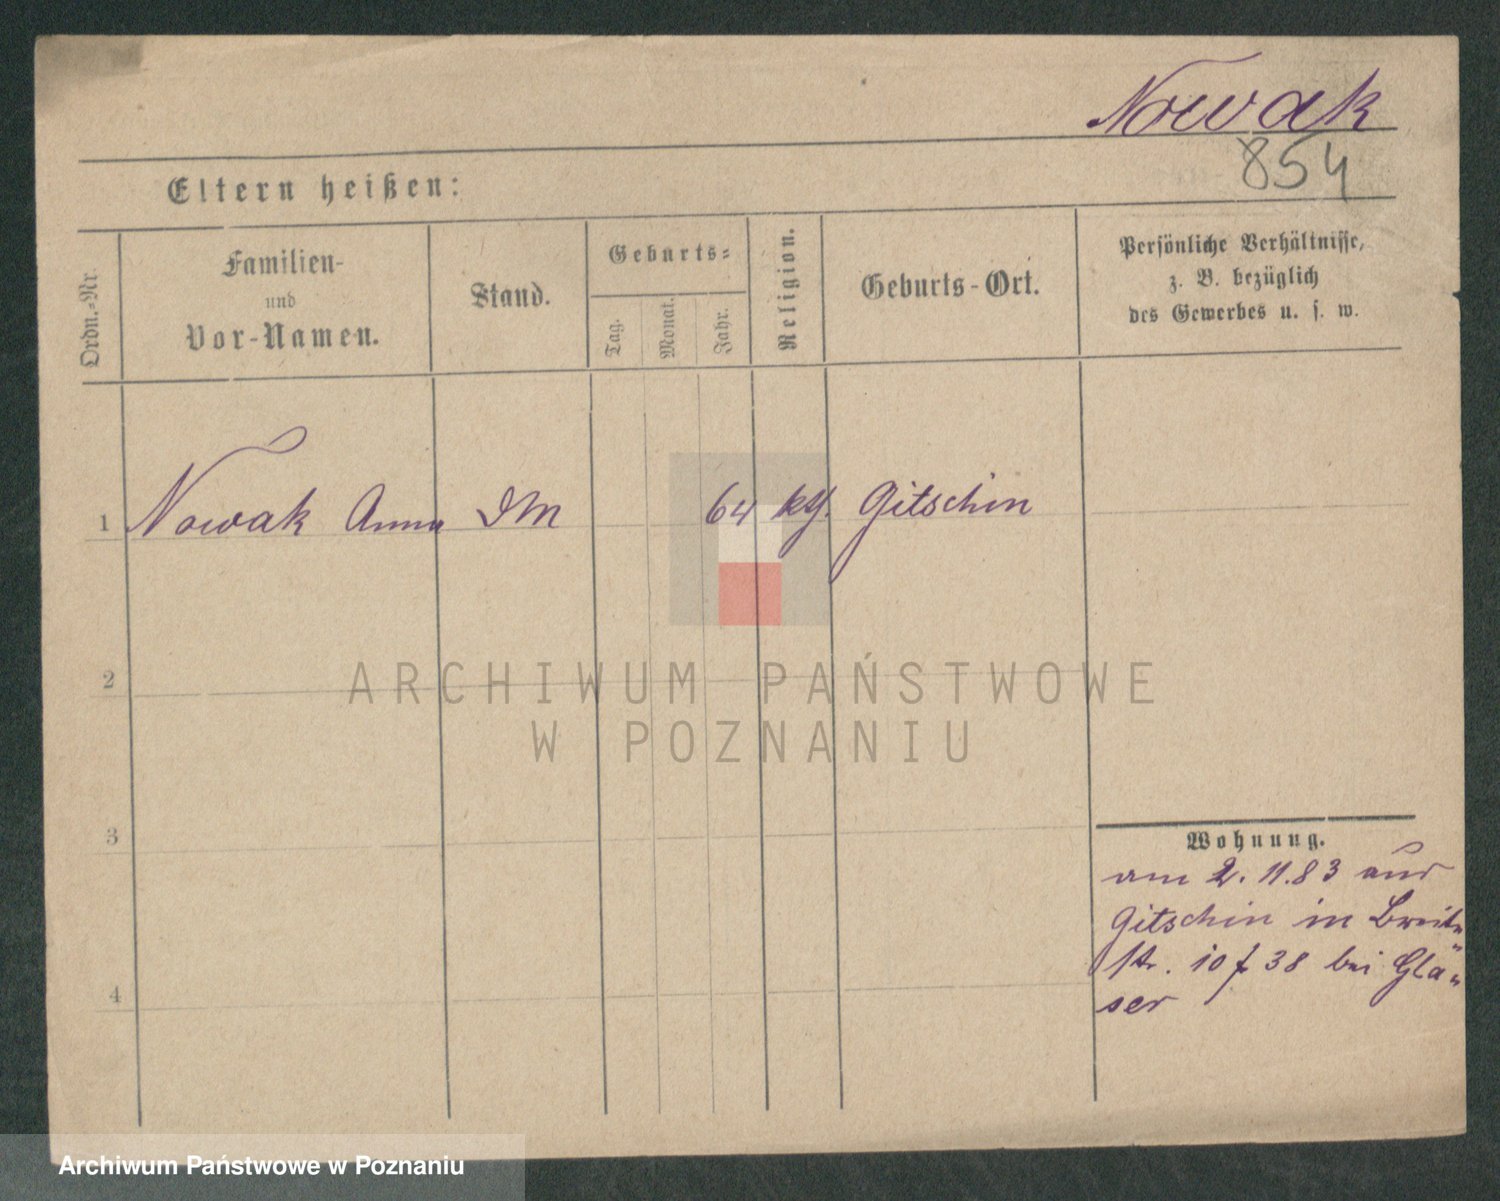 Nowak
854
Eltern heißen:
Ordn.-Nr.
Familien-
und
Vor-Namen.
Stand.
Geburts-
Tag.
Monat.
Jahr.
Religion.
Geburts-Ort.
Persönliche Verhältnisse,
z. B. bezüglich
des Gewerbes u. s. w.
1 Nowak Anna DM 64 kg. Gitschin
2
3
4
ARCHIWUM PAŃSTWOWE
W POZNANIU
Wohnung.
am 2.11.83 aus
Gitschin in Breite
str. 10 f 38 bei Glä-
ser
Archiwum Państwowe w Poznaniu